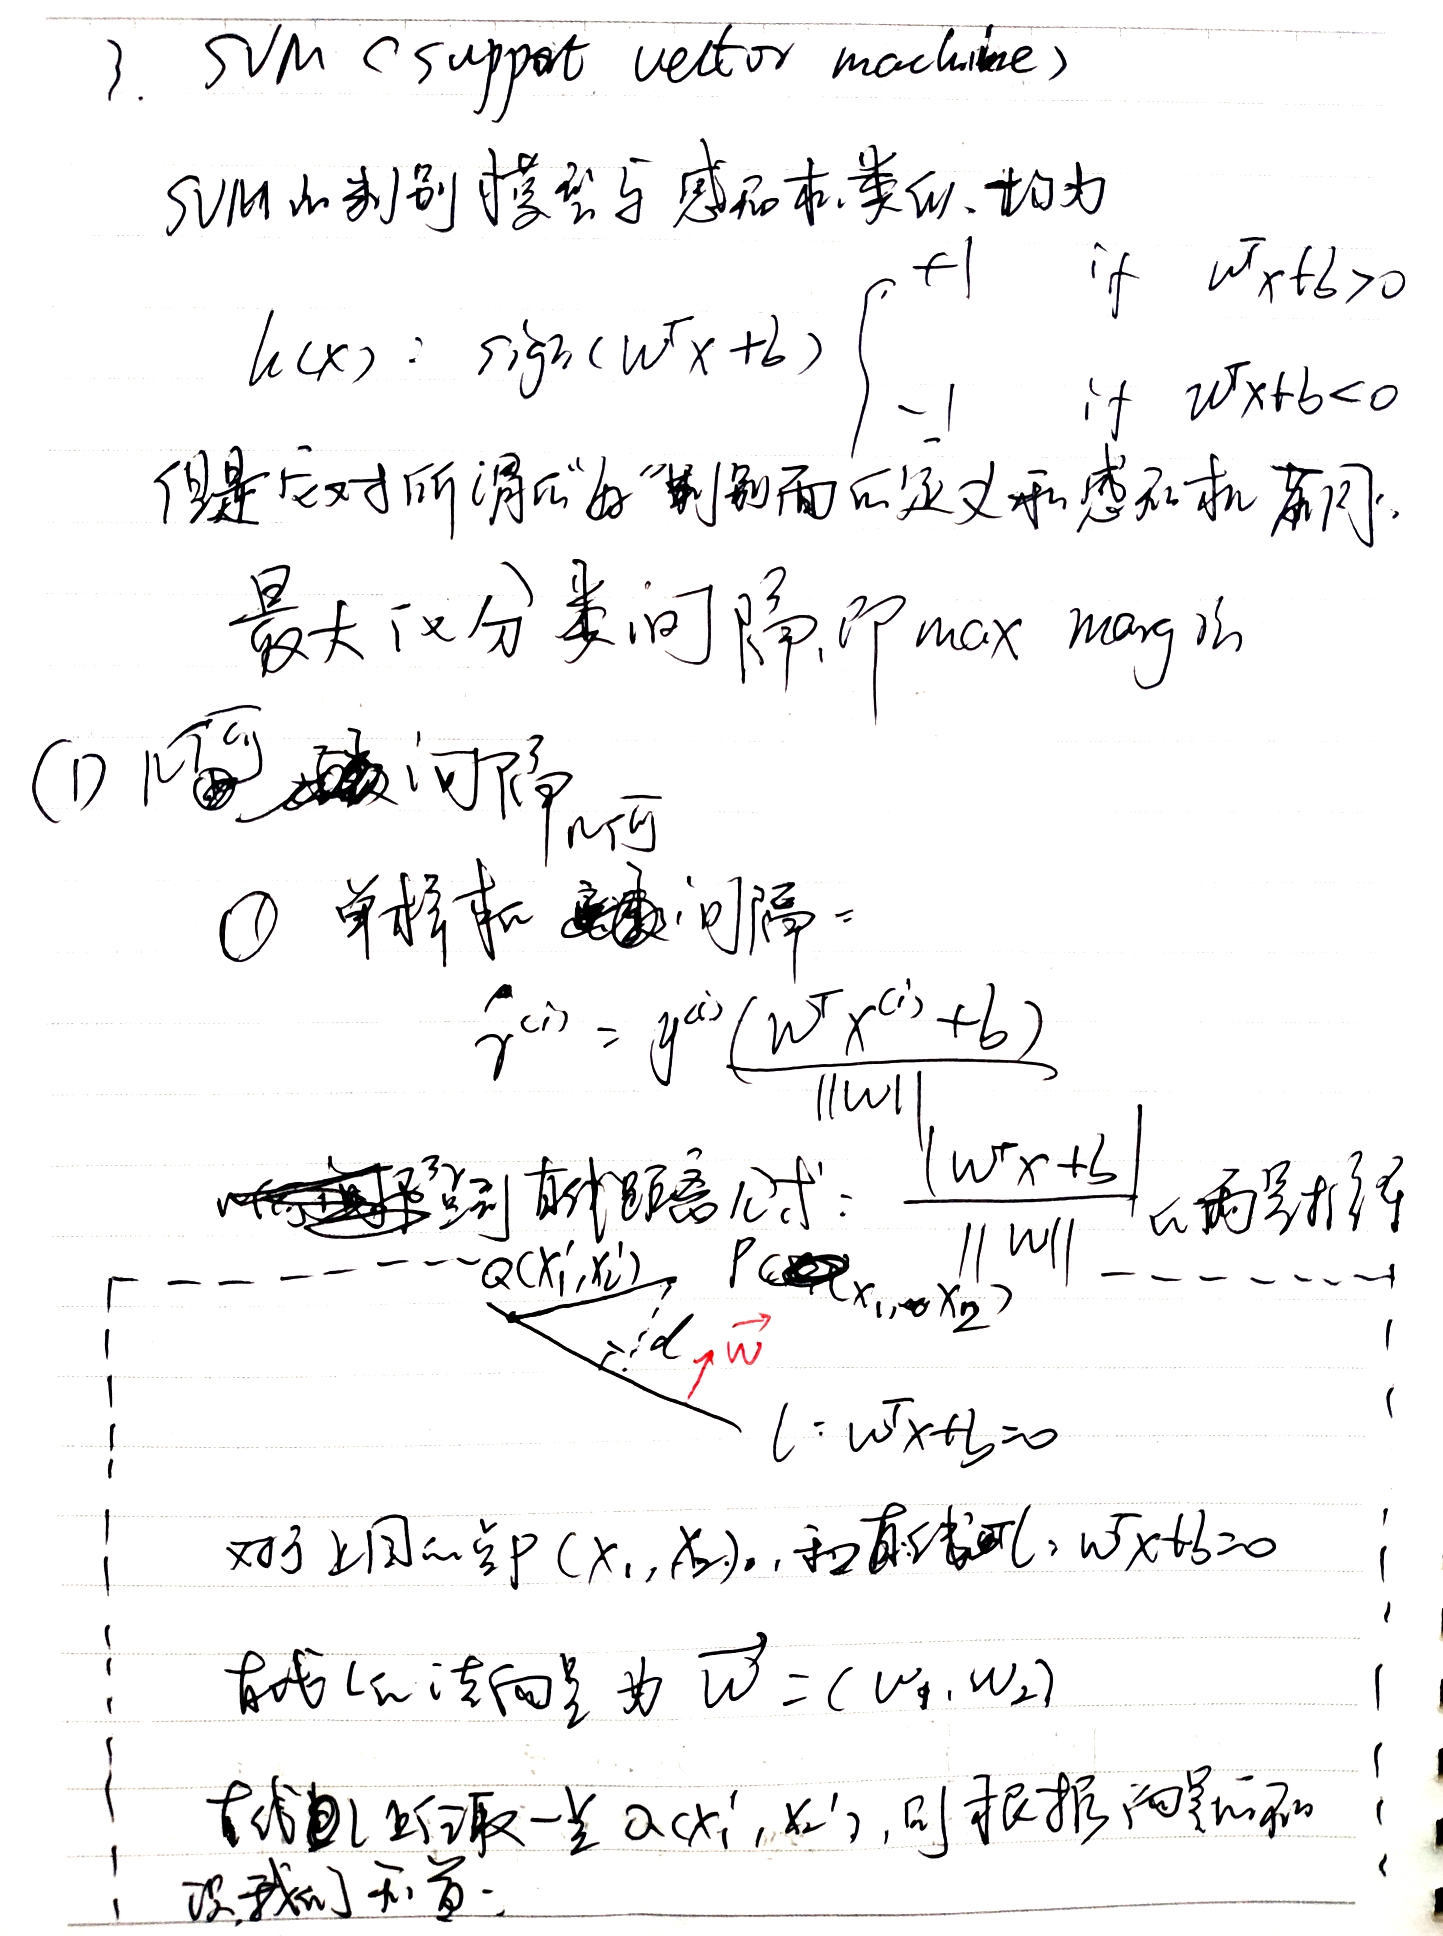 3. SVM (support vector machine)
SVM的判别模型与感知机类似、均为
h(x): sign(wᵀx+b) { +1 if wᵀx+b>0
-1 if wᵀx+b<0
但是应对所谓的"好"判别面的定义和感知机不同.
最大化分类间隔,即 max margin
(1) 几何间隔
几何
① 单样本的间隔:
γ̂⁽ⁱ⁾ = y⁽ⁱ⁾ (wᵀx⁽ⁱ⁾+b) / ||w||
点到直线距离公式: |wᵀx+b| / ||w|| 的向量推导
Q(x₁', x₂') P(x₁, x₂)
d
w⃗
l: wᵀx+b=0
对于上图的点P(x₁, x₂), 和直线l: wᵀx+b=0
直线l的法向量为 w⃗ = (w₁, w₂)
直线l上任取一点Q(x₁', x₂'), 则根据向量的知
识,我们知道: